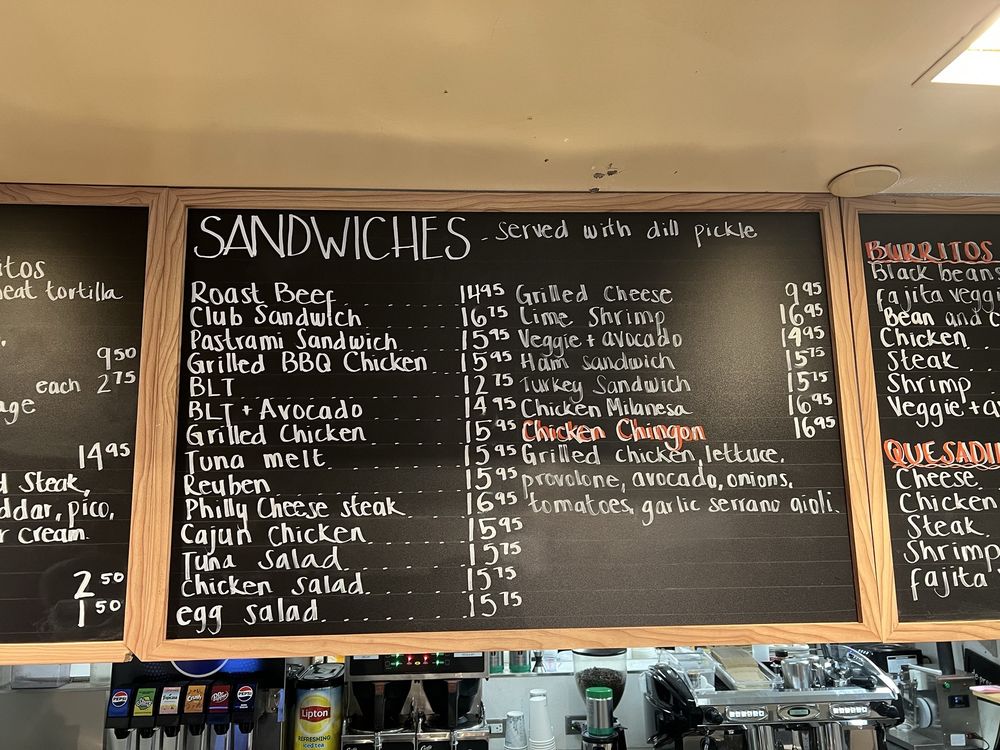 itos
eat tortilla
9 50
each 2 75
age
14 95
d steak,
ddar, pico,
r cream.
2 50
1 50
SANDWICHES - served with dill pickle
Roast Beef 14 95
Club Sandwich 16 75
Pastrami Sandwich 15 95
Grilled BBQ Chicken 15 95
BLT 12 75
BLT + Avocado 14 95
Grilled Chicken 15 95
Tuna melt 15 95
Reuben 15 95
Philly Cheese steak 16 95
Cajun Chicken 15 95
Tuna Salad 15 75
Chicken salad 15 75
egg salad 15 75
Grilled Cheese 9 95
Lime Shrimp 16 95
Veggie + avocado 14 95
Ham sandwich 15 75
Turkey Sandwich 15 75
Chicken Milanesa 16 95
Chicken Chingon 16 95
Grilled chicken, lettuce,
provolone, avocado, onions,
tomatoes, garlic serrano aioli.
BURRITOS
Black beans
fajita veggi
Bean and c
Chicken
Steak
Shrimp
Veggie + av
QUESADI
Cheese
Chicken
Steak
Shrimp
fajita
pepsi
pepsi
Lipton
REFRESHING
iced tea